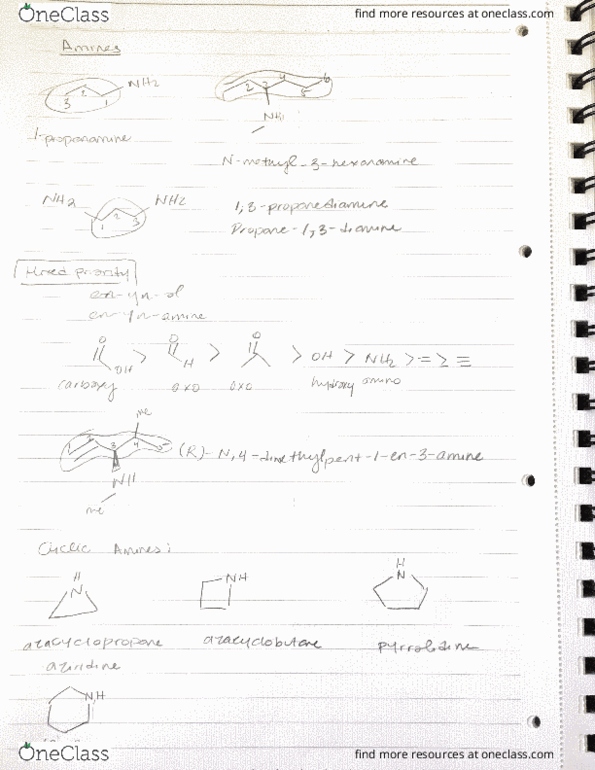 OneClass
find more resources at oneclass.com
Amines
NH2
3 2 1
1-propanamine
2 3 4 5 6
NH
N-methyl-3-hexanamine
NH2 NH2
1 2 3
1,3-propanediamine
Propane-1,3-diamine
Mixed priority
en-yn-ol
en-yn-amine
O OH > O H > O > OH > NH2 > = ≥ ≡
carboxy oxo oxo hydroxy amino
me
1 2 3 4 5
NH
me
(R)-N,4-dimethylpent-1-en-3-amine
Cyclic Amines:
H N
NH
H N
azacyclopropane azacyclobutane pyrrolidine
aziridine
NH
OneClass
find more resources at oneclass.com